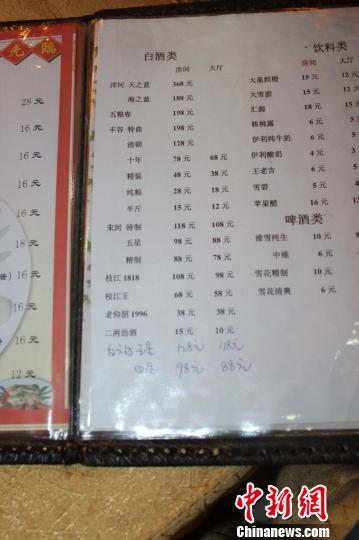 光臨
28元
16元
16元
16元
18元
16元
16元
16元
12元
白酒类
房间 大厅
洋河 天之蓝 368元
海之蓝 188元
五粮春 198元
丰谷 特曲 198元
清朝 128元
十年 78元 68元
精装 48元 38元
纯粮 28元 18元
半斤 15元 12元
宋河 特制 118元 108元
五星 98元 88元
精制 88元 78元
枝江 1818 108元 98元
枝江王 68元 58元
老仰韶 1996 38元 38元
二两劲酒 15元 10元
128元 118元
98元 88元
饮料类
房间 大厅
大果粒橙 15元 12
大雪碧 15元 12
汇源 18元 15
核桃露 6元 5
伊利纯牛奶 6元
伊利酸奶 4元
王老吉 6元
雪碧 5元
苹果醋 6元
啤酒类
维雪纯生 10元
中维 6元
雪花精制 10元
雪花清爽 6元
中新网
Chinanews.com